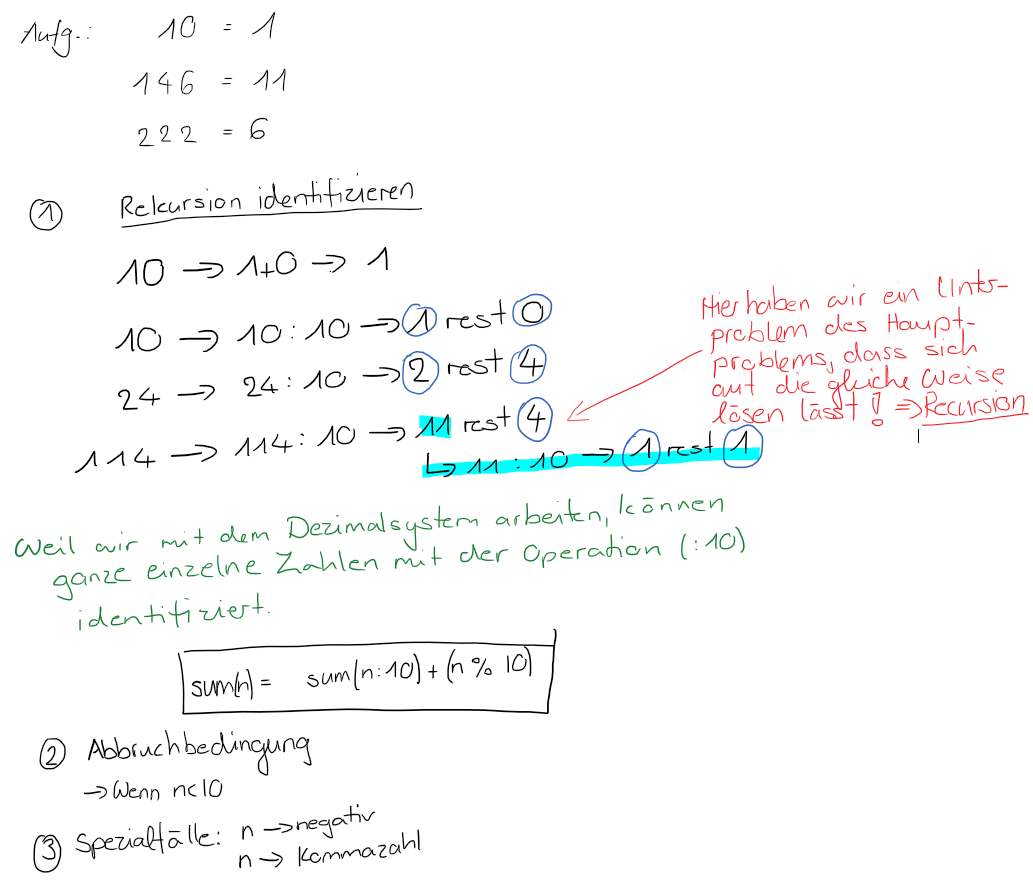 Aufg.: 10 = 1
146 = 11
222 = 6
① Rekursion identifizieren
10 → 1+0 → 1
10 → 10:10 → 1 rest 0
24 → 24:10 → 2 rest 4
114 → 114:10 → 11 rest 4
↳ 11:10 → 1 rest 1
Hier haben wir ein Unter-
problem des Haupt-
problems, dass sich
auf die gleiche Weise
lösen lässt! ⇒ Recursion
Weil wir mit dem Dezimalsystem arbeiten, können
ganze einzelne Zahlen mit der Operation (:10)
identifiziert.
sum(n) = sum(n:10) + (n % 10)
② Abbruchbedingung
→ Wenn n<10
③ Spezialfälle: n → negativ
n → Kommazahl